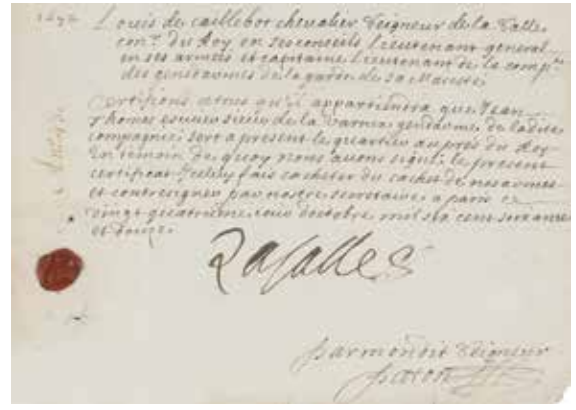 1672
Louis de caillebot chevalier Seigneur de la Salle
con.er du Roy en ses conseils Lieutenant general
en ses armées et capitaine lieutenant de la comp.nie
des gendarmes de la garde de sa Maiesté
Certifions atous qu'il appartiendra que Jean
Thomas escuier sieur de la Varenne gendarme de ladite
compagnie sert a present le quartier au pres du Roy
En temoin de quoy nous auons signé le present
certificat fais cacheter du cachet de nos armes
et contresigner par nostre secretaire a paris ce
vingt quatriéme iour doctobre mil six cens soixante
et douze
Lasalle
par mondit Seigneur